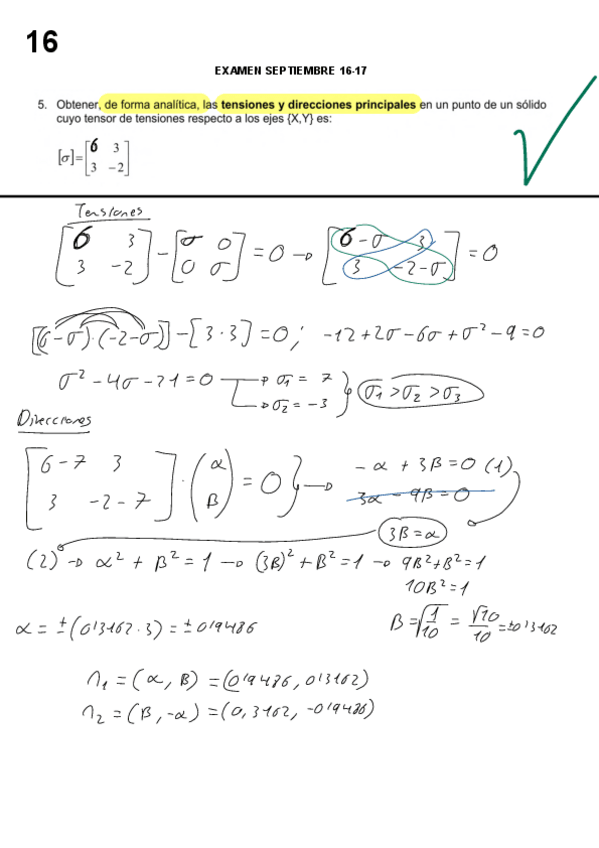 16
EXAMEN SEPTIEMBRE 16-17
5. Obtener, de forma analítica, las tensiones y direcciones principales en un punto de un sólido
cuyo tensor de tensiones respecto a los ejes {X,Y} es:
[σ]=[6 3
3 -2]
Tensiones
[6 3
3 -2] - [σ 0
0 σ] = 0 → [6-σ 3
3 -2-σ] = 0
[(6-σ)·(-2-σ)] - [3·3] = 0; -12+2σ-6σ+σ²-9=0
σ²-4σ-21=0 → σ1 = 7
→ σ2 = -3 } σ1>σ2>σ3
Direcciones
[6-7 3
3 -2-7] · (α
β) = 0 } → -α + 3β = 0 (1)
3α - 9β = 0
3β = α
(2) → α² + β² = 1 → (3β)² + β² = 1 → 9β²+β²=1
10β²=1
α = ±(0'3162·3) = ±0'9486
β = √1/10 = √10/10 = ±0'3162
n1 = (α, β) = (0'9486, 0'3162)
n2 = (β, -α) = (0,3162, -0'9486)